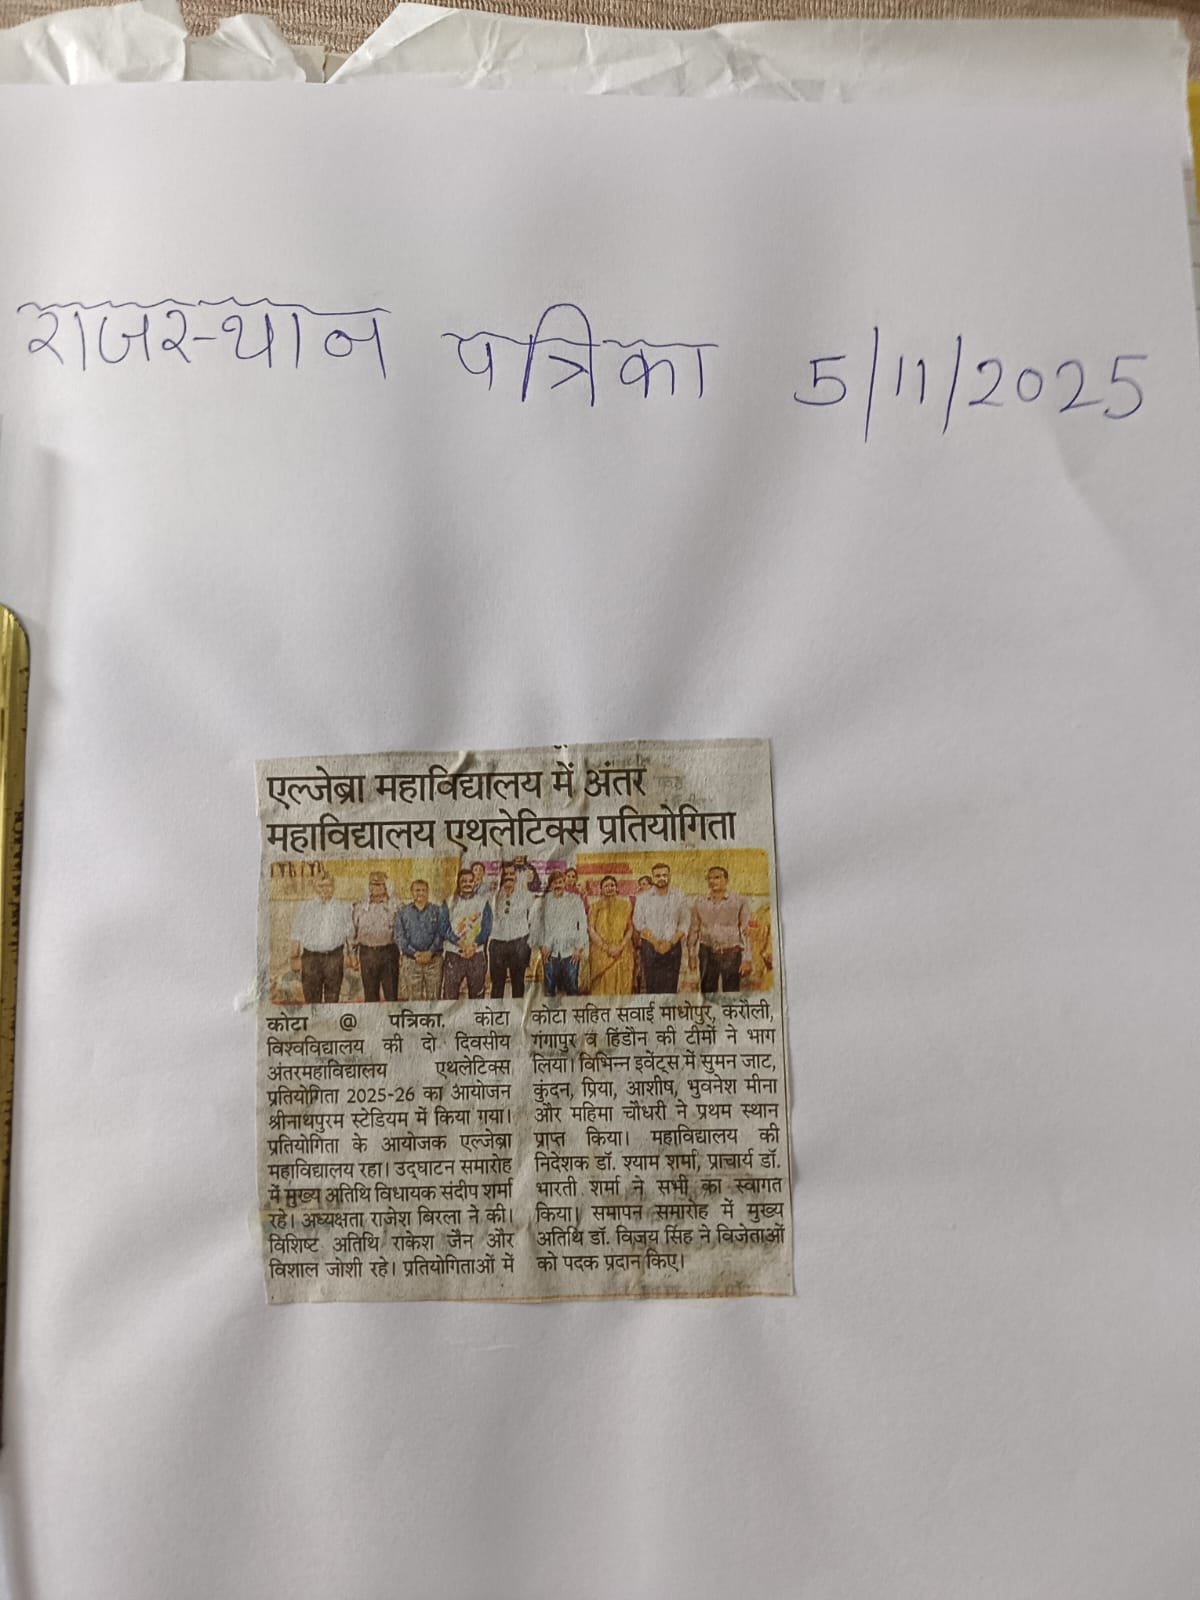 राजस्थान पत्रिका 5/11/2025
एल्जेब्रा महाविद्यालय में अंतर
महाविद्यालय एथलेटिक्स प्रतियोगिता
कोटा @ पत्रिका. कोटा
विश्वविद्यालय की दो दिवसीय
अंतरमहाविद्यालय एथलेटिक्स
प्रतियोगिता 2025-26 का आयोजन
श्रीनाथपुरम स्टेडियम में किया गया।
प्रतियोगिता के आयोजक एल्जेब्रा
महाविद्यालय रहा। उद्घाटन समारोह
में मुख्य अतिथि विधायक संदीप शर्मा
रहे। अध्यक्षता राजेश बिरला ने की।
विशिष्ट अतिथि राकेश जैन और
विशाल जोशी रहे। प्रतियोगिताओं में
कोटा सहित सवाई माधोपुर, करौली,
गंगापुर व हिंडौन की टीमों ने भाग
लिया। विभिन्न इवेंट्स में सुमन जाट,
कुंदन, प्रिया, आशीष, भुवनेश मीना
और महिमा चौधरी ने प्रथम स्थान
प्राप्त किया। महाविद्यालय की
निदेशक डॉ. श्याम शर्मा, प्राचार्य डॉ.
भारती शर्मा ने सभी का स्वागत
किया। समापन समारोह में मुख्य
अतिथि डॉ. विजय सिंह ने विजेताओं
को पदक प्रदान किए।